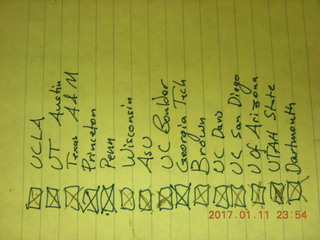 UCLA
UT Austin
Texas A&M
Princeton
Penn
Wisconsin
ASU
UC Boulder
Georgia Tech
Brown
UC Davis
UC San Diego
U of Arizona
UTAH State
Dartmouth
2017.01.11 23:54